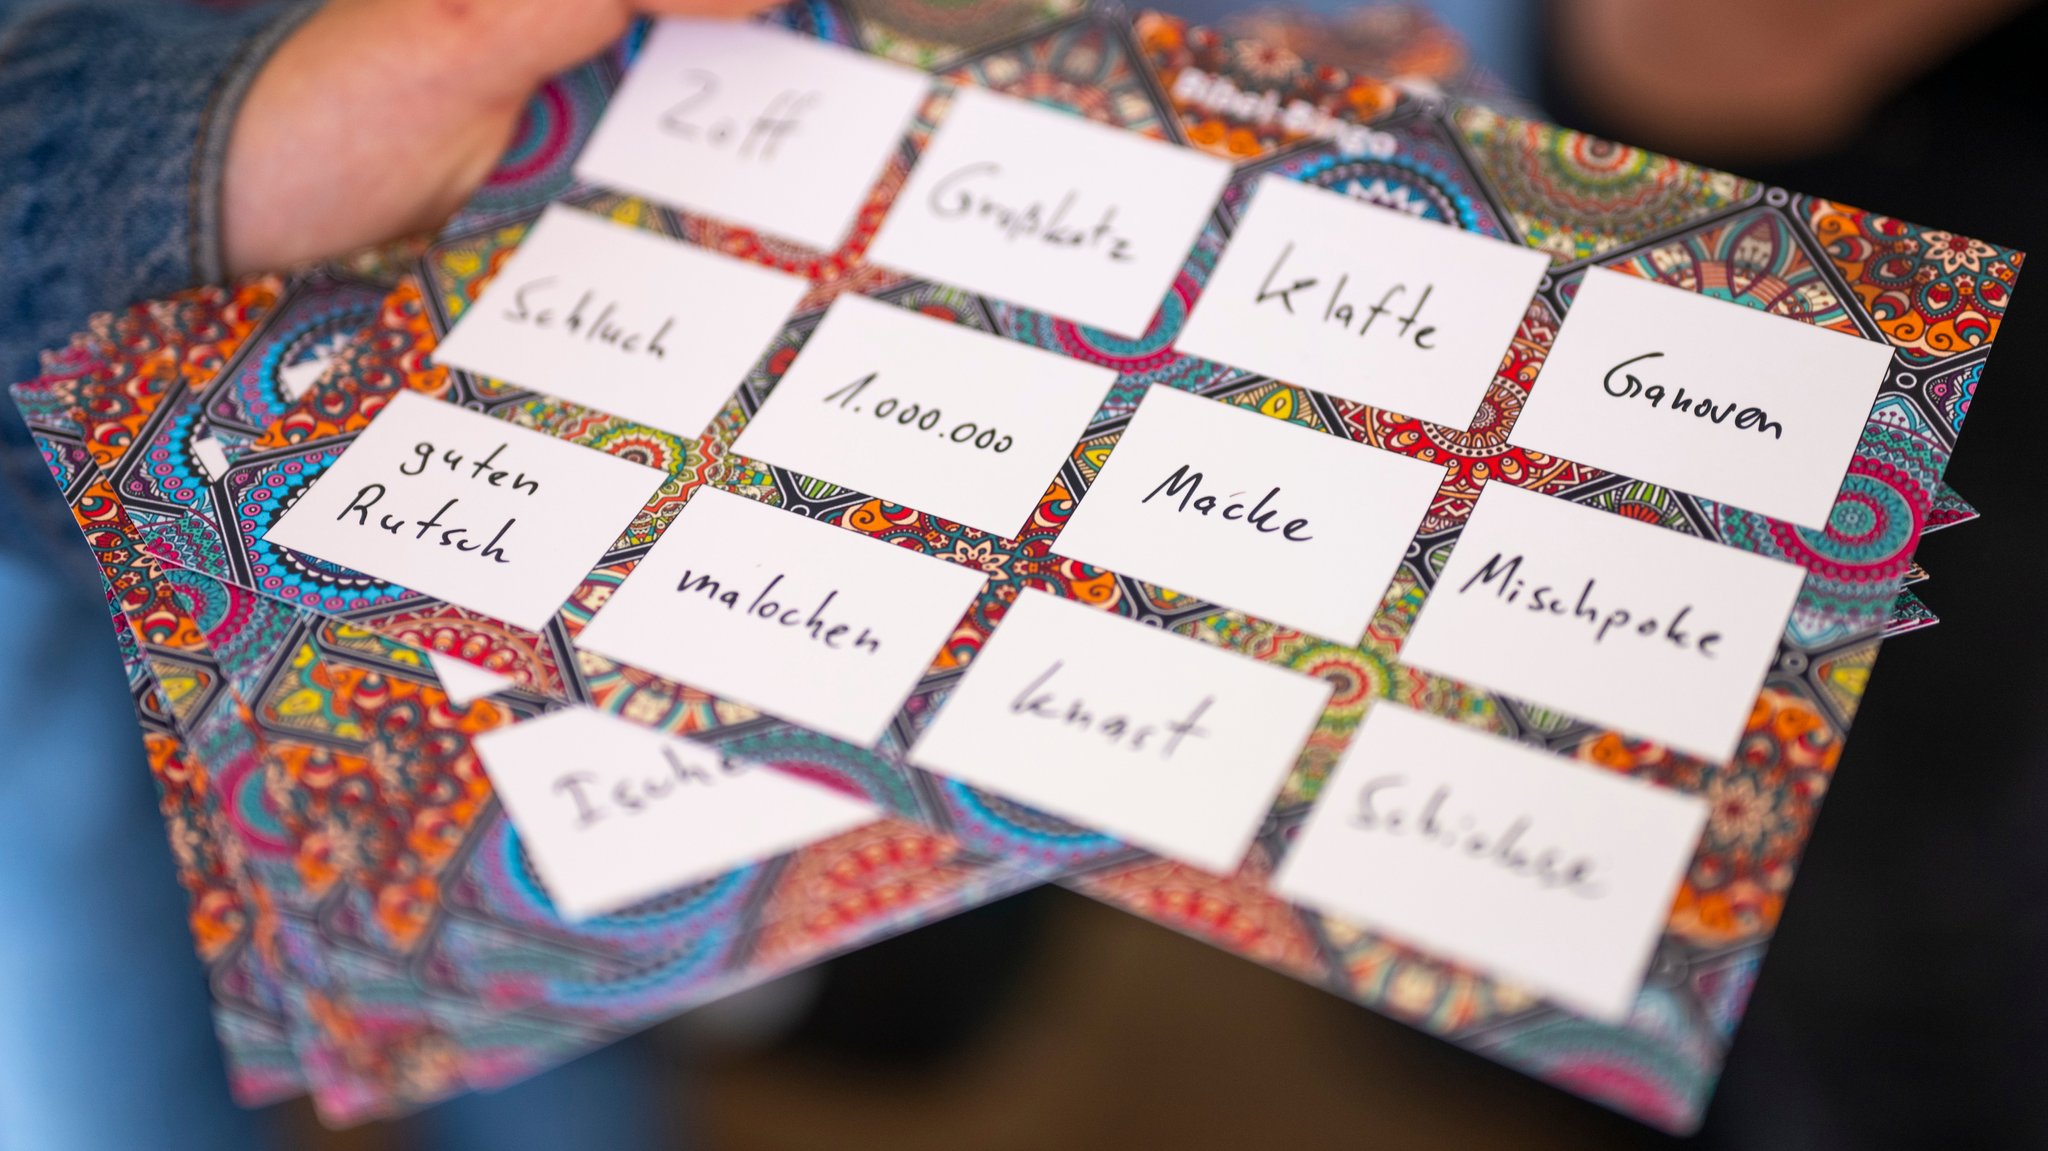 Bibel-Bingo
Zoff
Großkotz
Klafte
Ganoven
Schluch
1.000.000
Macke
Mischpoke
guten
Rutsch
malochen
Knast
Schickse
Ische